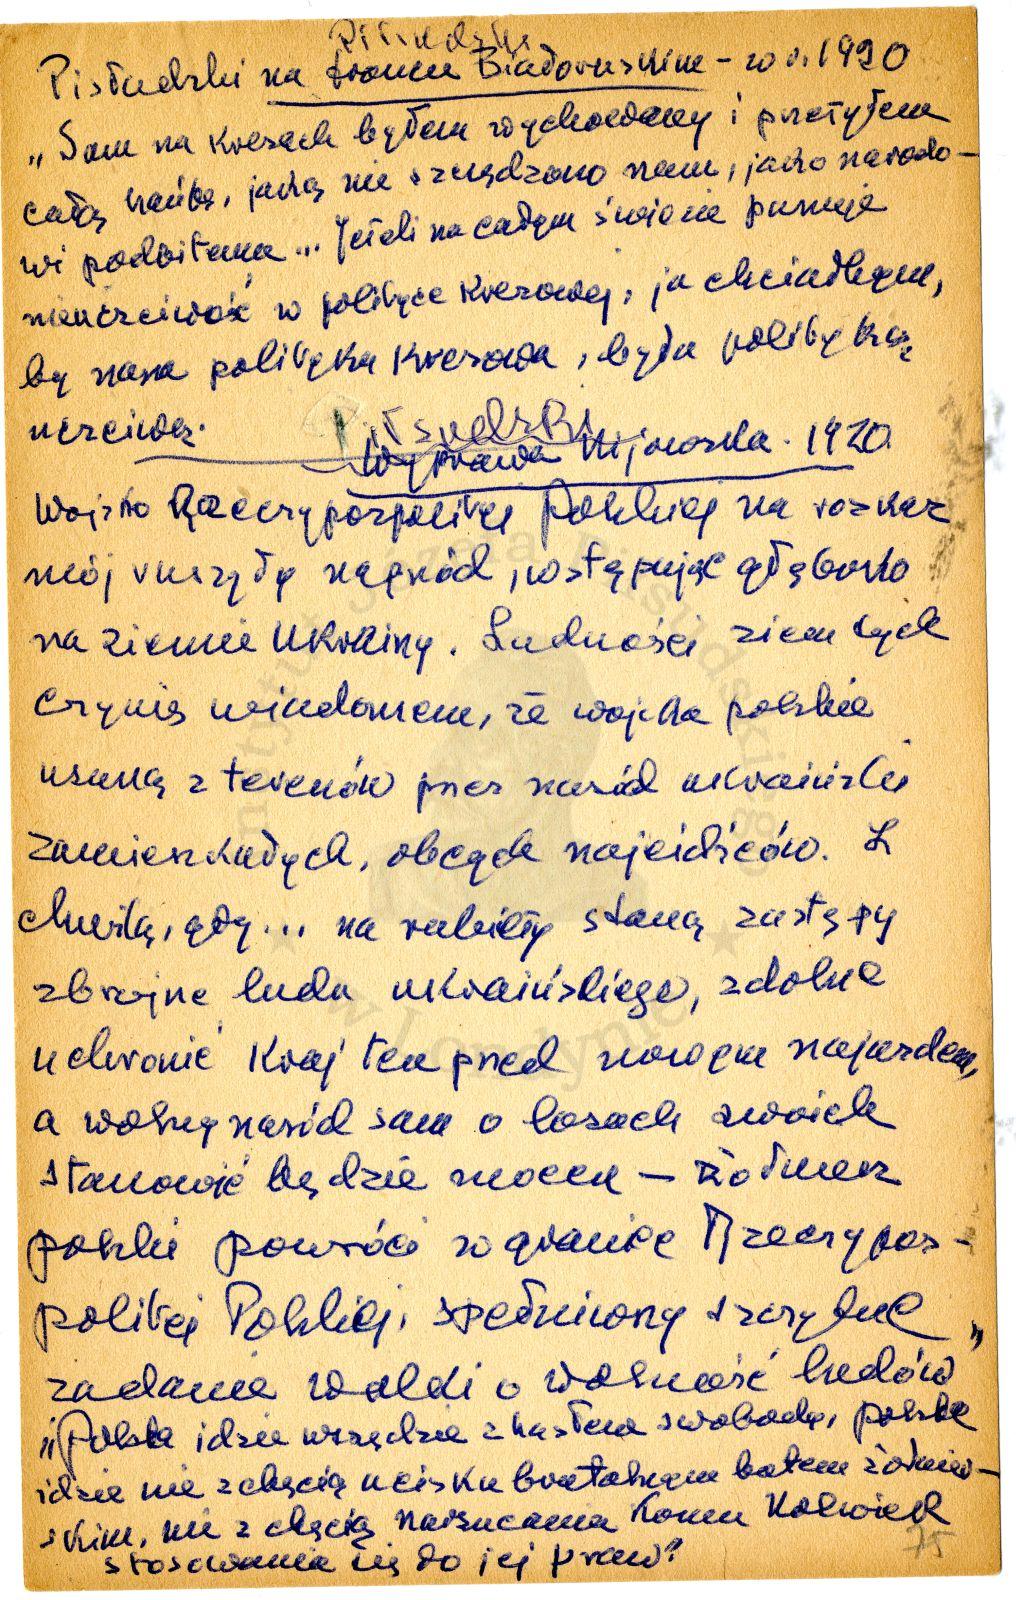 Piłsudski
Piłsudski na froncie Białoruskim – w r. 1920
„Sam na kresach byłem wychowany i przeżyłem
całą hańbę, jaką nie szczędzono nam, jako narodo-
wi podbitemu... Jeżeli na całym świecie panuje
nieuczciwość w polityce kresowej, ja chciałbym,
by nasza polityka kresowa, była polityką
uczciwą.
Piłsudski
Wyprawa Kijowska. 1920
Wojsko Rzeczypospolitej Polskiej na rozkaz
mój ruszyły naprzód, wstępując głęboko
na ziemie Ukrainy. Ludności ziem tych
czynię wiadomem, że wojska polskie
usuną z terenów przez naród ukraiński
zamieszkałych, obcych najeźdźców. Z
chwilą, gdy... na rubieży staną zastępy
zbrojne ludu ukraińskiego, zdolne
uchronić kraj ten przed nowym najazdem,
a wolny naród sam o losach swoich
stanowić będzie mocen – żołnierz
polski powróci w granice Rzeczypos-
politej Polskiej, spełniwszy szczytne
zadanie walki o wolność ludów"
"Polska idzie wszędzie z hasłem swobody, Polska
idzie nie z chęcią ucisku brutalnym butem żołnier-
skim, nie z chęcią narzucania komu kolwiek
stosowania się do jej praw?
75
Instytut Józefa Piłsudskiego
w Londynie